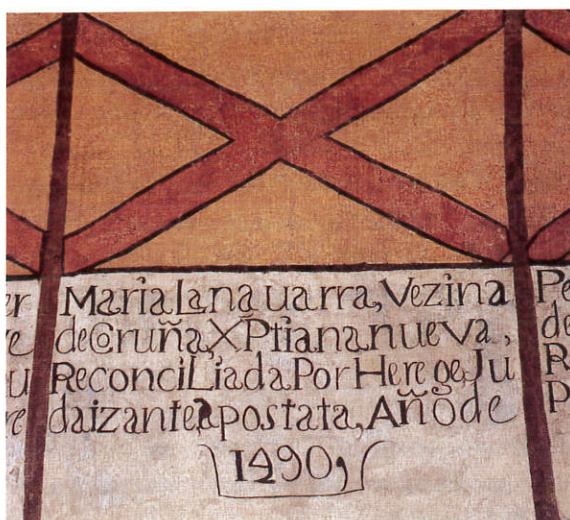 er Maria La nauarra, Vezina Pe
ve de Coruña, XPtiana nueva, de
u Reconciliada Por Herege, Ju R
re daizante apostata, Año de P
1490,